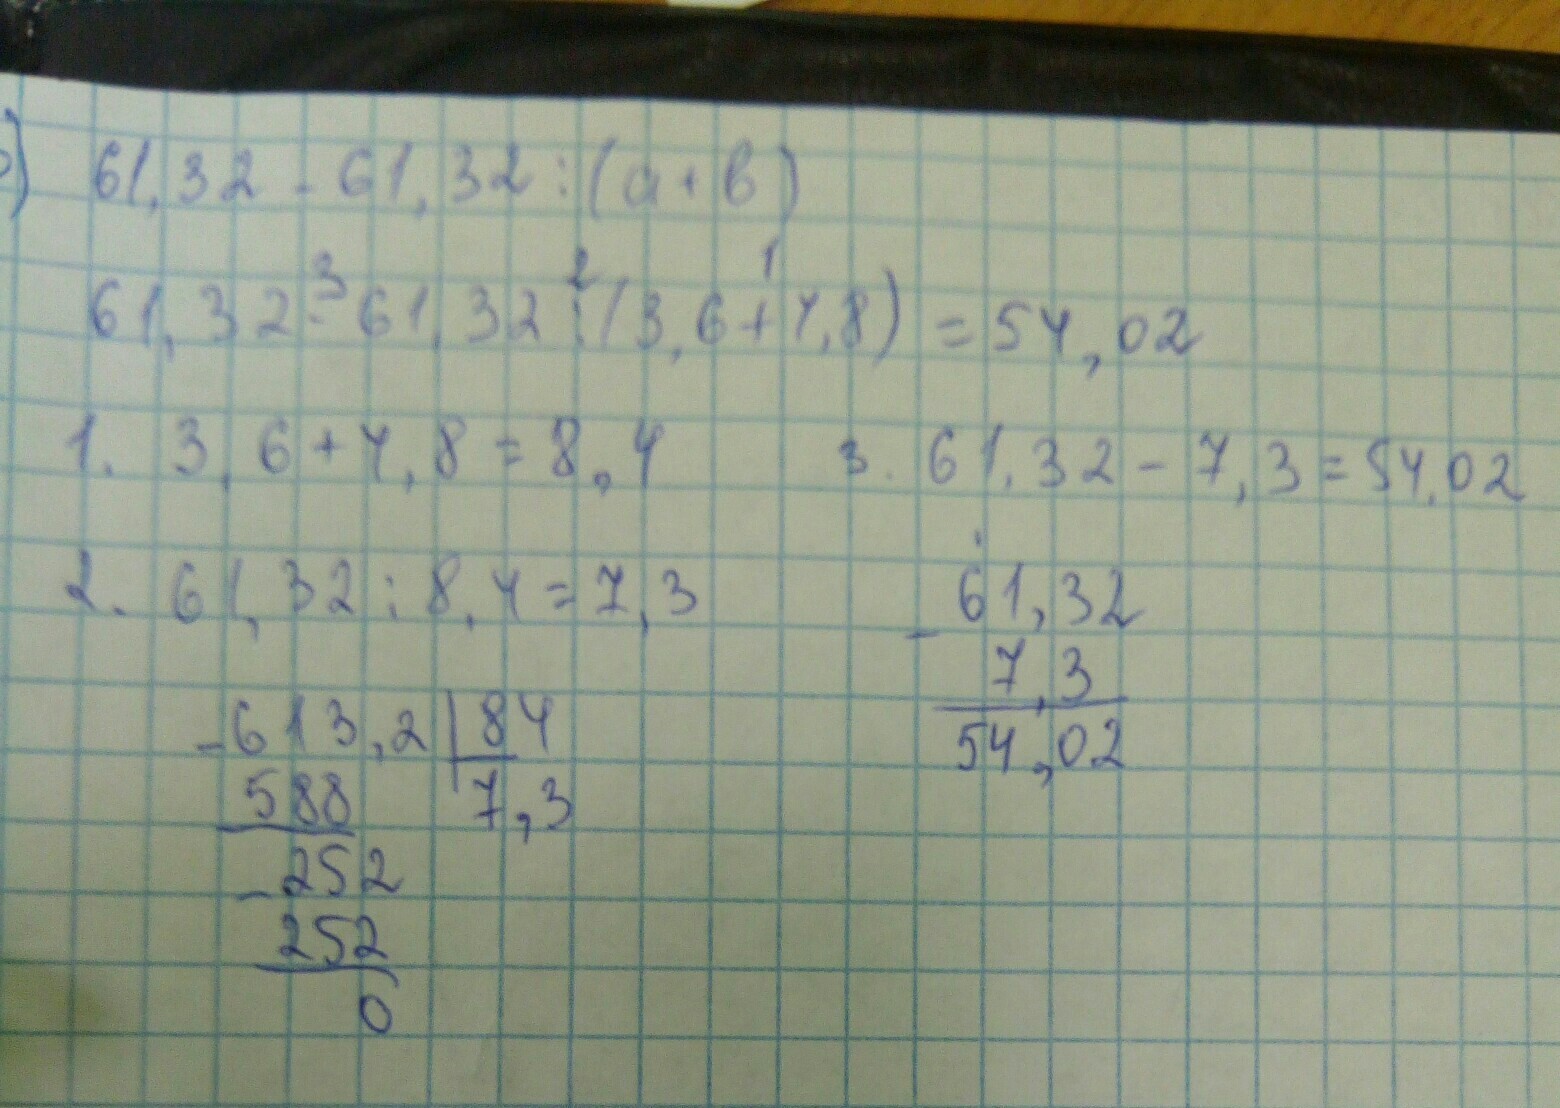 61,32 - 61,32 : (a + b)
3 2 1
61,32 - 61,32 : (3,6 + 4,8) = 54,02
1. 3,6 + 4,8 = 8,4
2. 61,32 : 8,4 = 7,3
- 613,2 | 84
588 7,3
- 252
252
0
3. 61,32 - 7,3 = 54,02
- 61,32
7,3
54,02